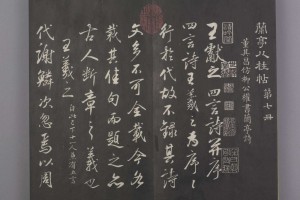 蘭亭八柱帖 第七冊
董其昌仿柳公權書蘭亭詩
王獻之四言詩并序
四言詩王羲之為序序
行於代故不錄其詩
文多不可全載今各
裁其佳句而題之亦
古人斷章之義也
王羲之
代謝鱗次忽焉以周